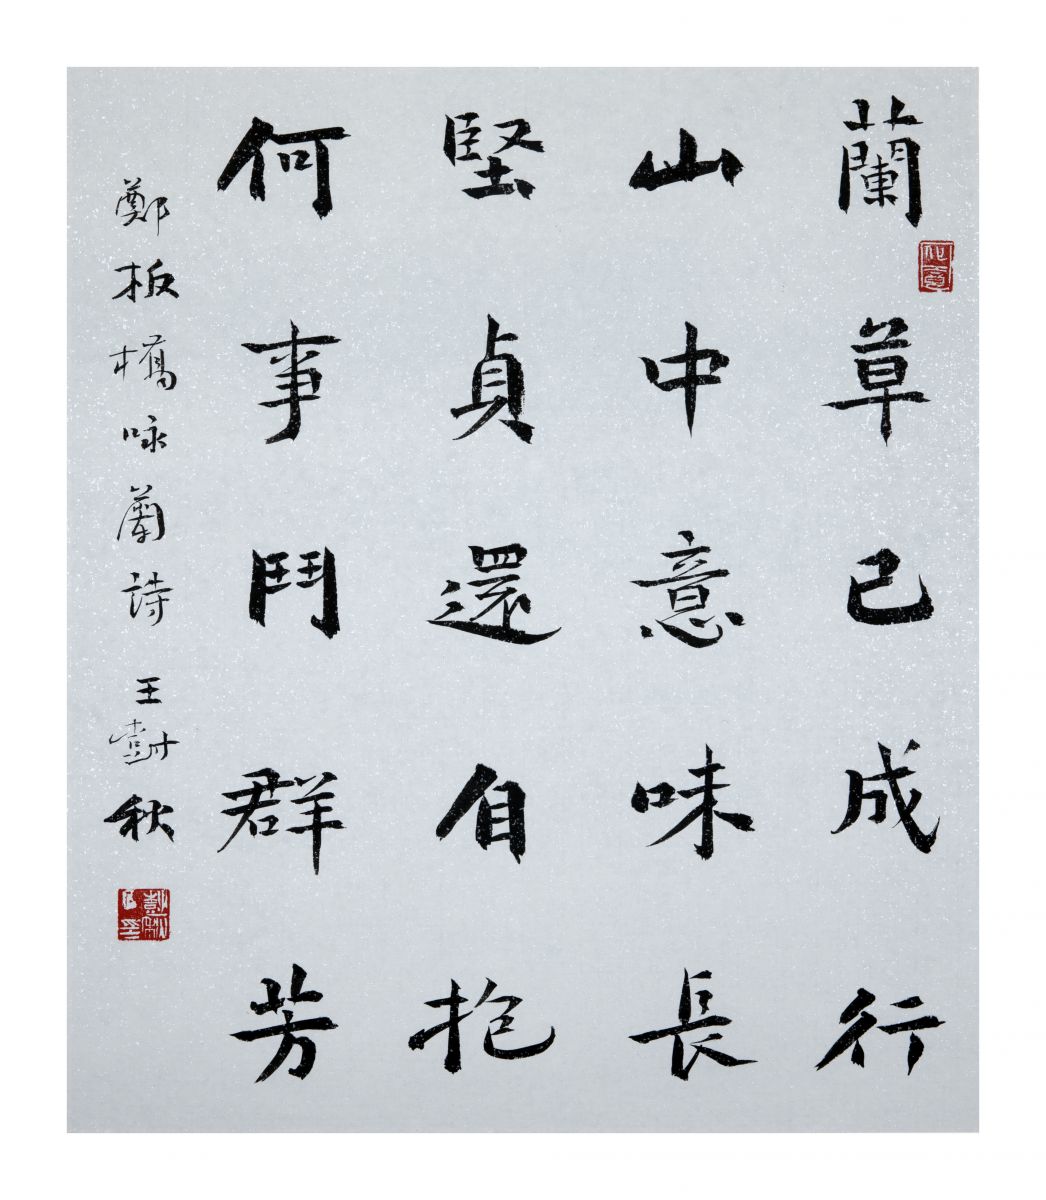 蘭草已成行
山中意味長
堅貞還自抱
何事鬥群芳
鄭板橋咏蘭詩 王 秋